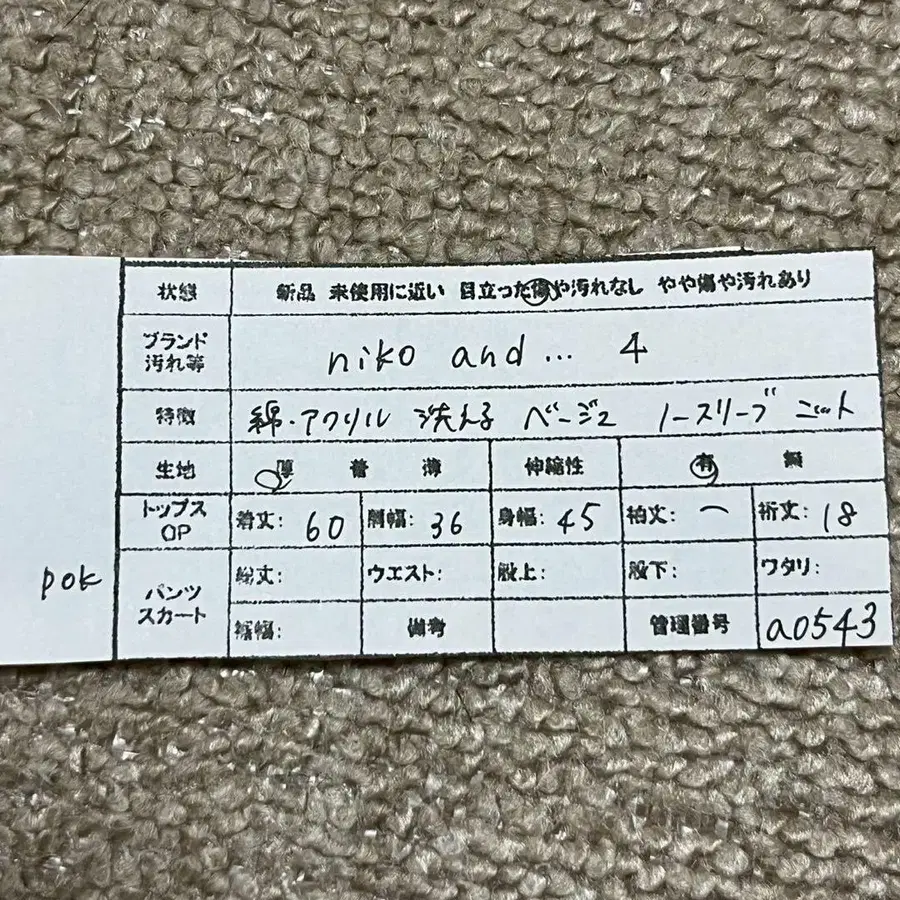 状態 新品 未使用に近い 目立った傷や汚れなし やや傷や汚れあり
ブランド
汚れ等 niko and... 4
特徴 綿・アクリル 洗える ベージュ ノースリーブ ニット
生地 厚 普 薄 伸縮性 有 無
トップス
OP 着丈: 60 肩幅: 36 身幅: 45 袖丈: ー 裄丈: 18
pok
パンツ
スカート 総丈: ウエスト: 股上: 股下: ワタリ:
裾幅: 備考 管理番号 a0543